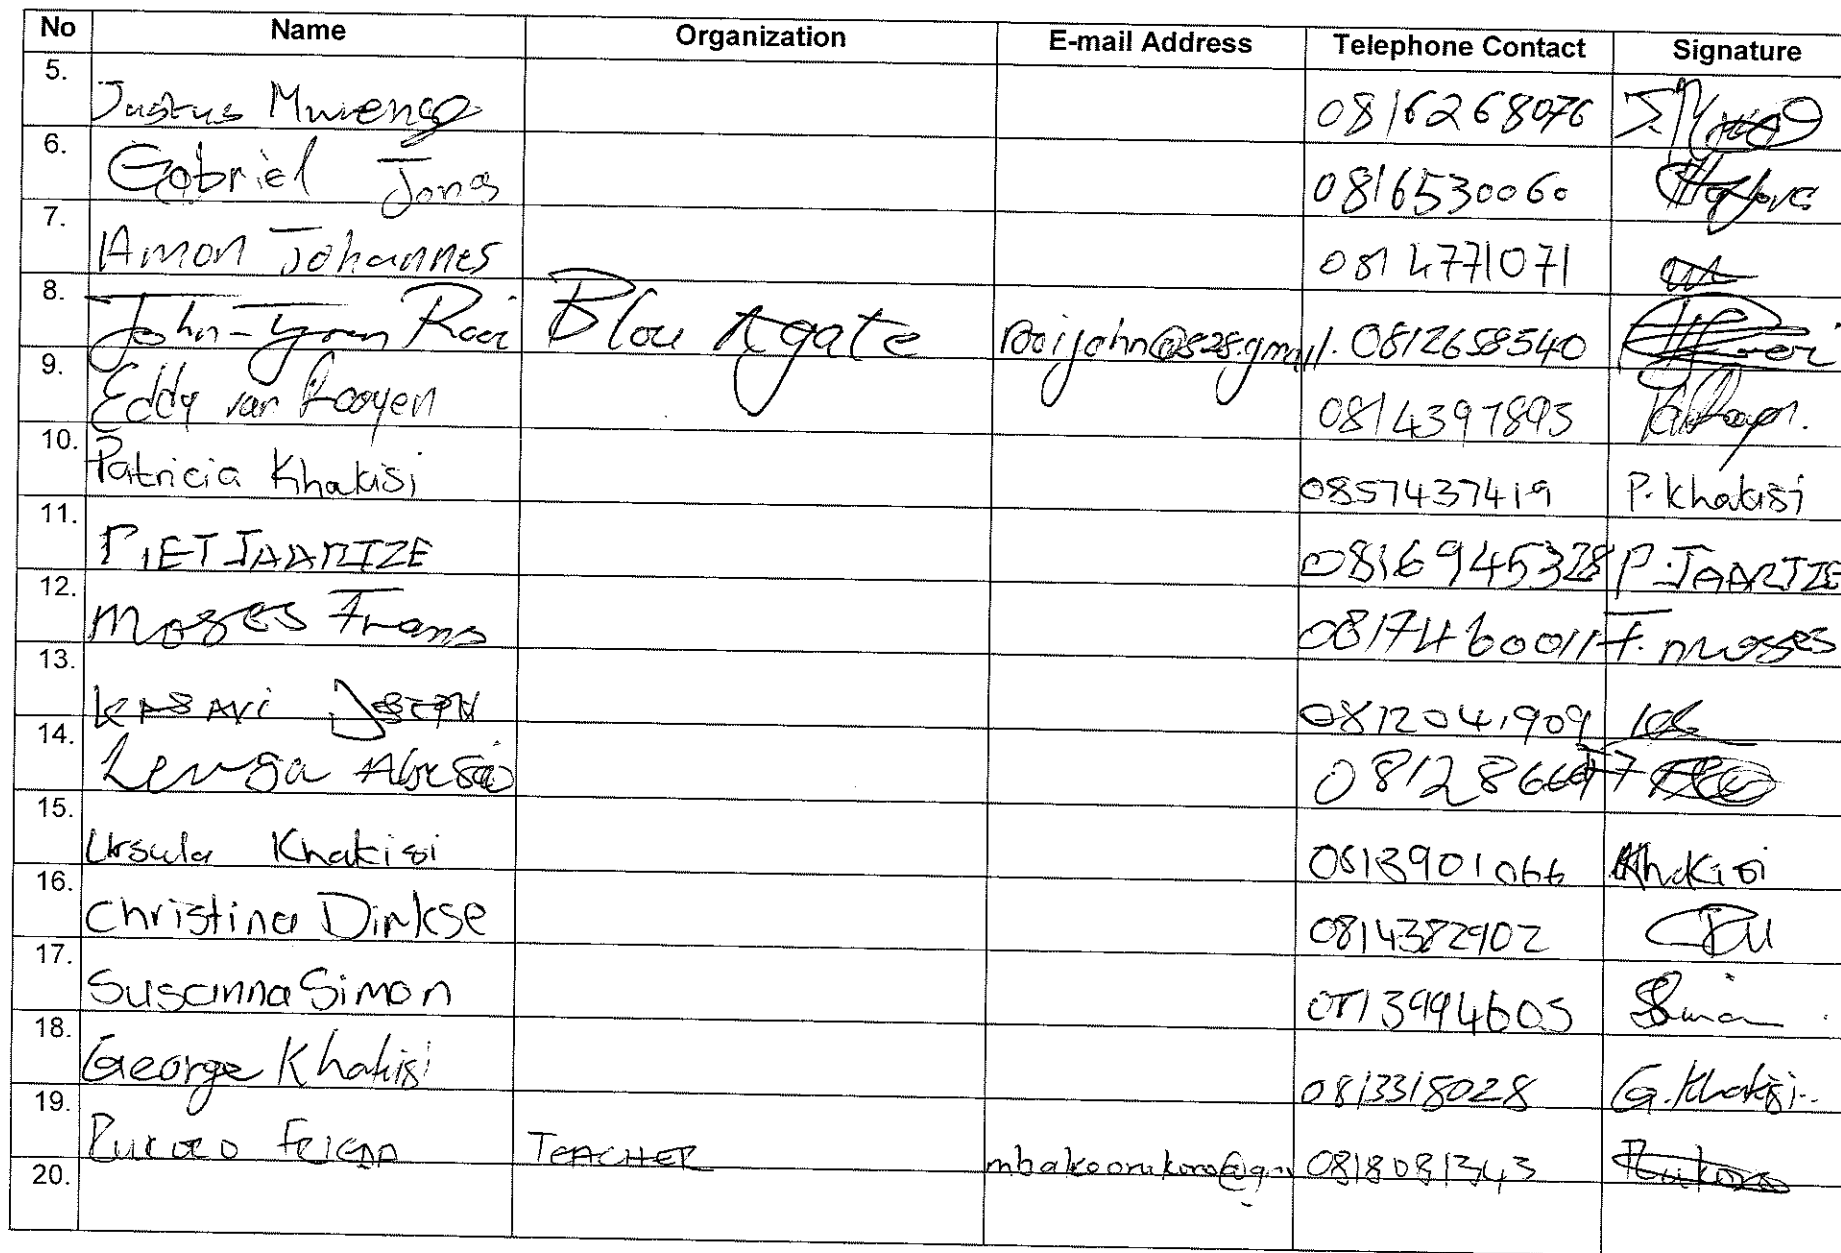 No Name Organization E-mail Address Telephone Contact Signature
5. Justus Mwengo 0816268076
6. Gabriel Jonas 0816530060
7. Amon Johannes 0814771071
8. John- Rooi Blou Agate rooijohn@828.gmail. 0812658540
9. Eddy van Rooyen 0814397895
10. Patricia Khakisi 0857437419 P. Khakisi
11. PIET JAARTZE 0816945328 P. JAARTZE
12. Moses Frans 0817460011 F. moses
13. KASAVI JOSEPH 0812041909
14.
15. Ursula Khakisi 0813901066 Khakisi
16. Christina Dirkse 0814382902
17. Susanna Simon 0813994605
18. George Khakisi 0813318028 G. Khakisi
19. TEACHER 0818081343 Rukoro
20.